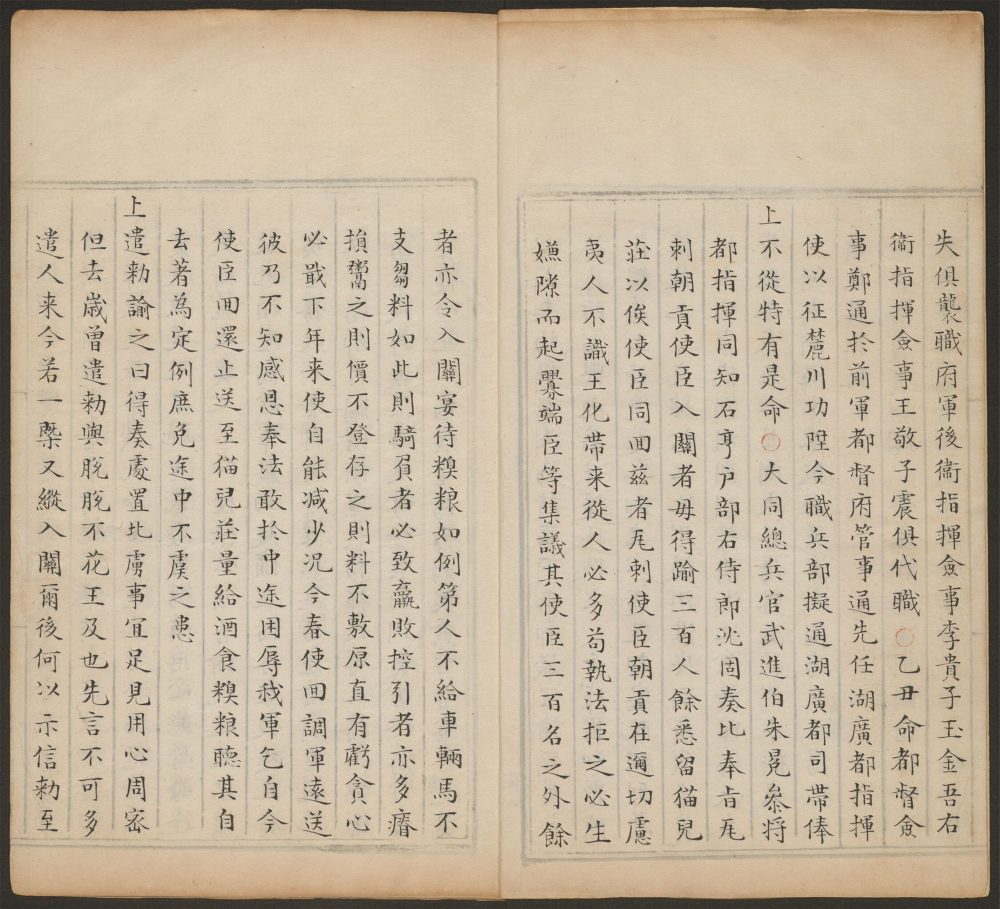 失俱襲職府軍後衞指揮僉事李貴子玉金吾右
衞指揮僉事王敬子震俱代職○乙丑命都督僉
事鄭通於前軍都督府管事通先任湖廣都指揮
使以征麓川功陞今職兵部擬通湖廣都司帶俸
上不從特有是命○大同總兵官武進伯朱冕叅將
都指揮同知石亨户部右侍郎沈固奏比奉旨凡
剌朝貢使臣入關者毋得踰三百人餘悉留猫兒
莊以俟使臣同回兹者凡剌使臣朝貢在邇切慮
夷人不識王化帶来從人必多苟執法拒之必生
嫌隙而起釁端臣等集議其使臣三百名之外餘
者亦令入關宴待糗粮如例第人不給車輛馬不
支芻料如此則騎負者必致羸敗控引者亦多瘠
損鬻之則價不登存之則料不敷原直有虧貪心
必戢下年来使自能減少况今春使回調軍遠送
彼乃不知感恩奉法敢於中途困辱我軍乞自今
使臣回還止送至猫兒莊量給酒食糗粮聽其自
去著為定例庶免途中不虞之患
上遣勅諭之曰得奏處置北虜事冝足見用心周宻
但去歲曾遣勅與脫脫不花王及也先言不可多
遣人来今若一槩又縱入關爾後何以示信勅至